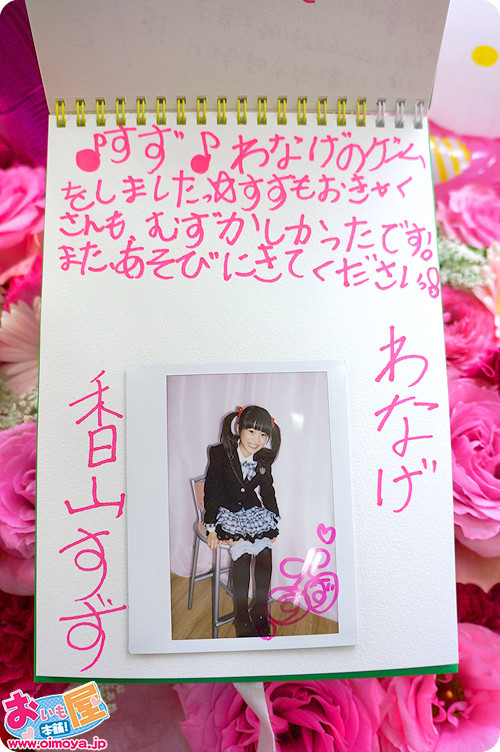 ♪すず♪わなげのゲーム
をしましたっ!!すずもおきゃく
さんも、むずかしかったです!
また、あそびにきてくださいっ!
わなげ
香山すず
すず
おいも屋
本舗!
www.oimoya.jp